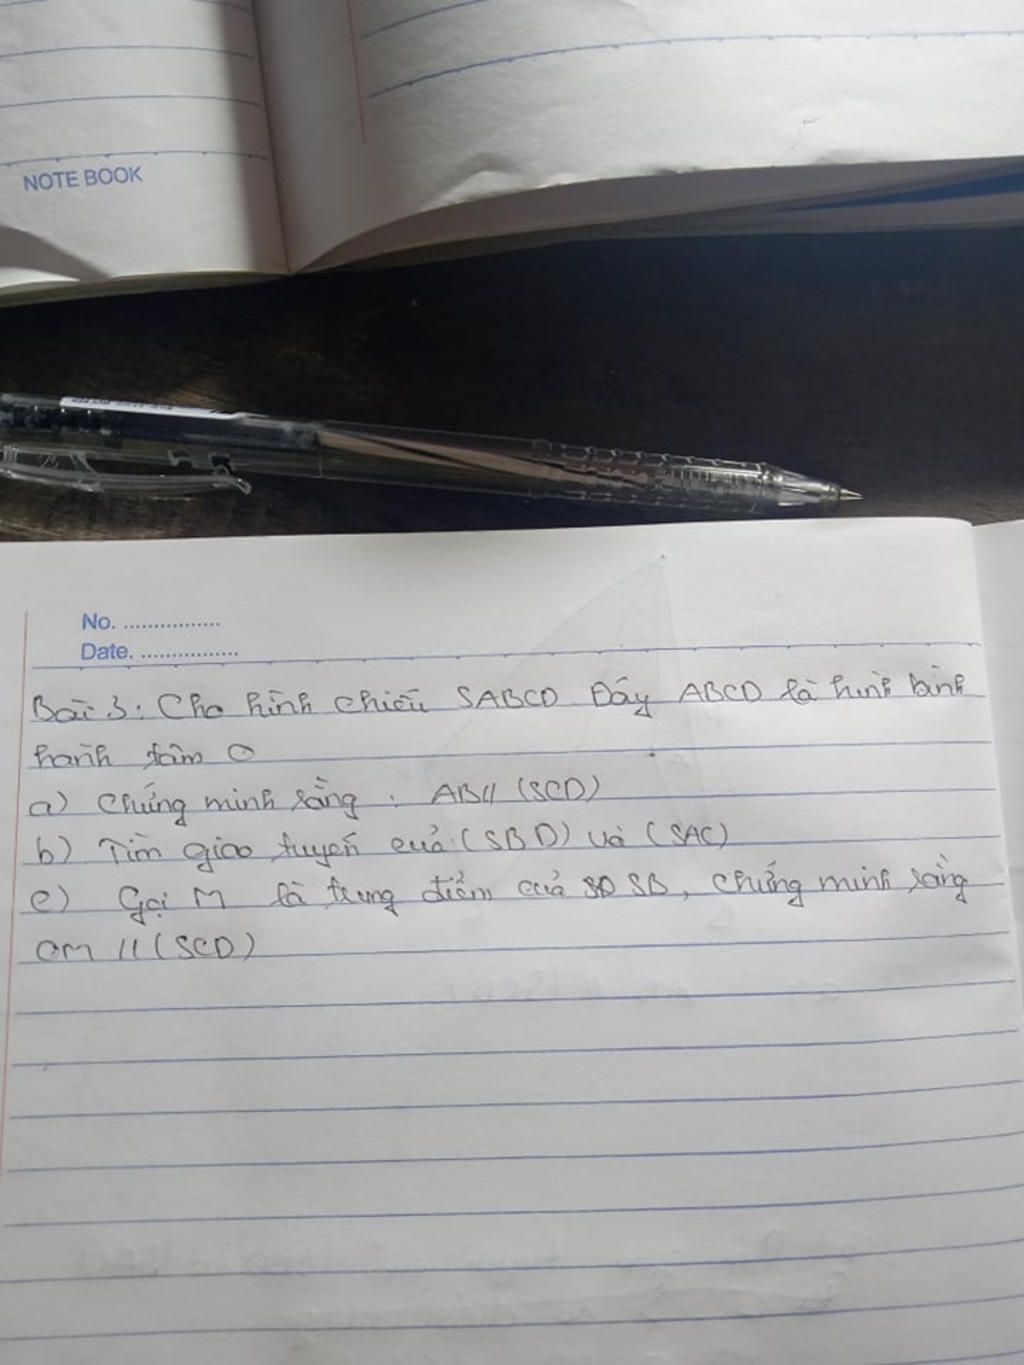 NOTE BOOK
No. ................
Date. ................
Bài 3: Cho hình chiếu SABCD Đáy ABCD là hình bình
hành tâm O
a) Chứng minh rằng : AB // (SCD)
b) Tìm giao tuyến của (SBD) và (SAC)
c) Gọi M là trung điểm của SB, chứng minh rằng
OM // (SCD)